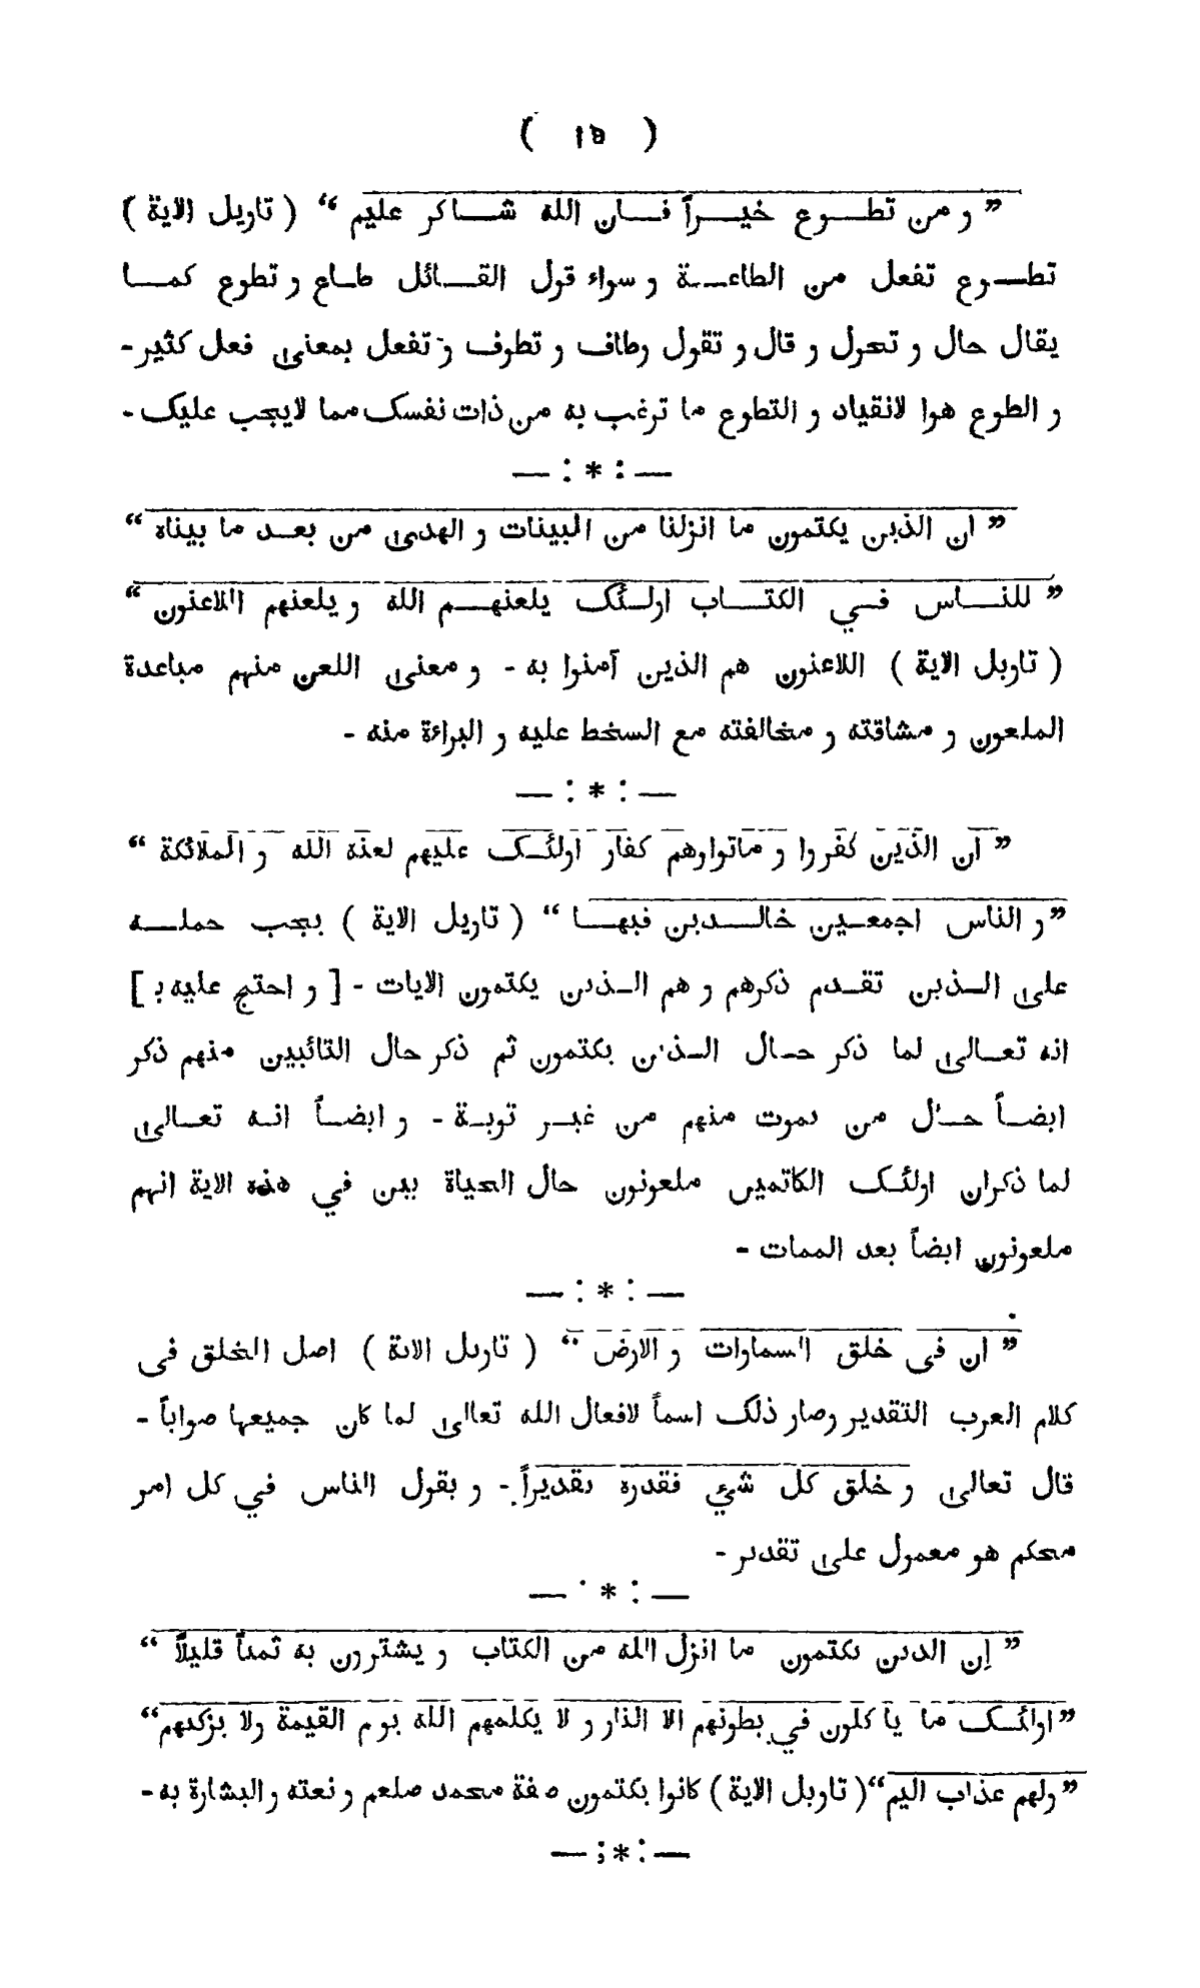 ( ١٥ )
” و من تطوع خيراً فان الله شاكر عليم “ ( تاويل الاية )
تطوع تفعل من الطاعة و سواء قول القائل طاع و تطوع كما
يقال حال و تحول و قال و تقول وطاف و تطوف و تفعل بمعنى فعل كثير -
و الطوع هوا لانقياد و التطوع ما ترغب به من ذات نفسك مما لايجب عليك -
— : * : —
” ان الذين يكتمون ما انزلنا من البينات و الهدى من بعد ما بيناه “
” للناس في الكتاب اولئك يلعنهم الله و يلعنهم اللاعنون “
( تاويل الاية ) اللاعنون هم الذين آمنوا به - و معنى اللعن منهم مباعدة
الملعون و مشاقته و مخالفته مع السخط عليه و البراءة منه -
— : * : —
” ان الذين كفروا و ماتواوهم كفار اولئك عليهم لعنة الله و الملائكة “
” و الناس اجمعين خالدين فيها “ ( تاويل الاية ) يجب حمله
على الذين تقدم ذكرهم و هم الذين يكتمون الايات - [ و احتج عليه ب ]
انه تعالى لما ذكر حال الذين يكتمون ثم ذكر حال التائبين منهم ذكر
ايضاً حال من يموت منهم من غير توبة - و ايضاً انه تعالى
لما ذكران اولئك الكاتمين ملعونون حال الحياة بين في هذه الاية انهم
ملعونون ايضاً بعد الممات -
— : * : —
” ان فى خلق السماوات و الارض “ ( تاويل الاية ) اصل الخلق فى
كلام العرب التقدير وصار ذلك اسماً لافعال الله تعالى لما كان جميعها صواباً -
قال تعالى و خلق كل شئ فقدره تقديراً - و يقول الناس في كل امر
محكم هو معمول على تقدير -
— : * : —
” إن الذين يكتمون ما انزل الله من الكتاب و يشترون به ثمناً قليلاً “
” اولئك ما يا كلون في بطونهم الا النار و لا يكلمهم الله يوم القيمة ولا يزكيهم “
” ولهم عذاب اليم “ ( تاويل الاية ) كانوا يكتمون صفة محمد صلعم و نعته و البشارة به -
— : * ; —